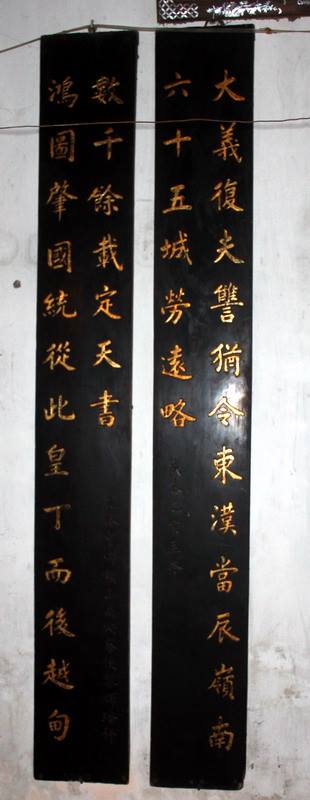 大義復夫讐猶令東漢當辰嶺南
六十五城勞遠略
鴻圖肇國統從此皇丁而後越甸
數千餘載定天書